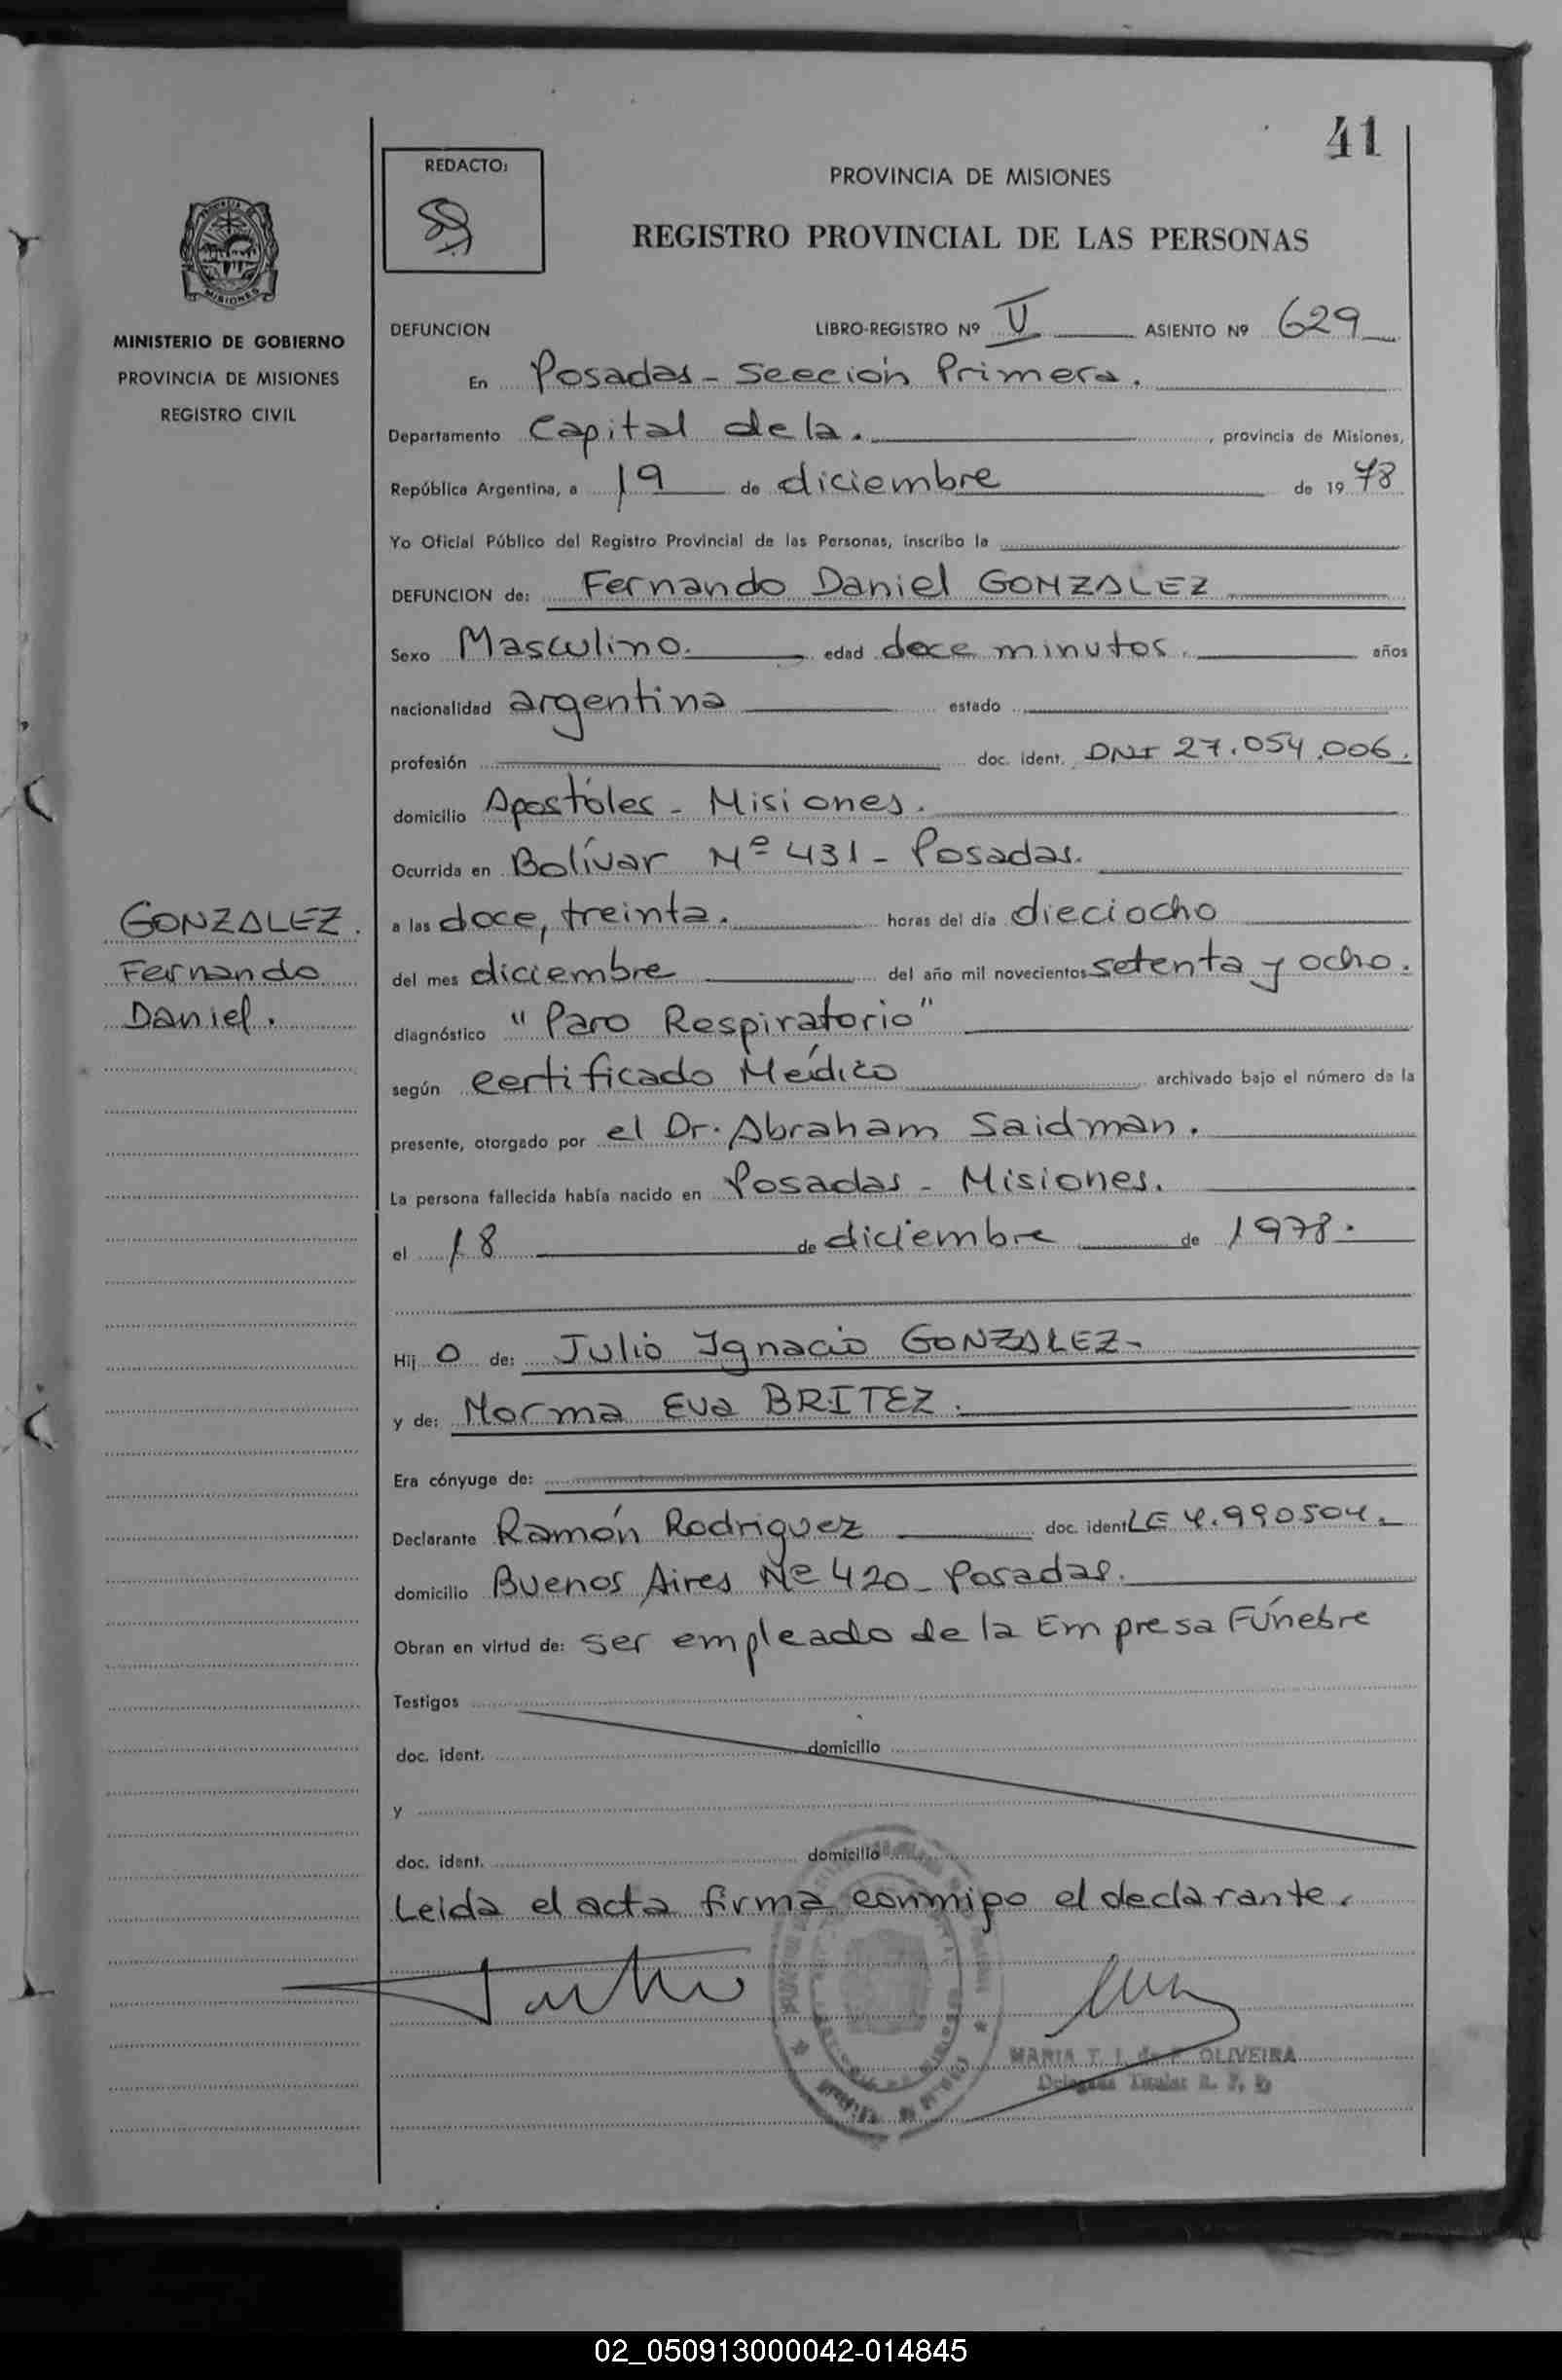 41
REDACTO:
PROVINCIA DE MISIONES
REGISTRO PROVINCIAL DE LAS PERSONAS
MISIONES
MINISTERIO DE GOBIERNO
PROVINCIA DE MISIONES
REGISTRO CIVIL
DEFUNCION LIBRO-REGISTRO Nº V ASIENTO Nº 629
En Posadas - Sección Primera.
Departamento Capital de la. , provincia de Misiones,
República Argentina, a 19 de diciembre de 1978
Yo Oficial Público del Registro Provincial de las Personas, inscribo la
DEFUNCION de: Fernando Daniel GONZALEZ
Sexo Masculino. edad doce minutos. años
nacionalidad argentina estado
profesión doc. ident. DNI 27.054.006.
domicilio Apóstoles - Misiones.
Ocurrida en Bolívar Nº 431 - Posadas.
GONZALEZ.
Fernando
Daniel.
a las doce, treinta. horas del día dieciocho
del mes diciembre del año mil novecientos setenta y ocho.
diagnóstico "Paro Respiratorio"
según certificado Médico archivado bajo el número de la
presente, otorgado por el Dr. Abraham Saidman.
La persona fallecida había nacido en Posadas - Misiones.
el 18 de diciembre de 1978.
Hij o de: Julio Ignacio GONZALEZ-
y de: Norma Eva BRITEZ.
Era cónyuge de:
Declarante Ramón Rodriguez doc. ident. LE 4.990504.
domicilio Buenos Aires Nº 420 - Posadas.
Obran en virtud de: ser empleado de la Empresa Fúnebre
Testigos
doc. ident. domicilio
y
doc. ident. domicilio
Leida el acta firma conmigo el declarante.
MARIA T. I. de OLIVEIRA
Delegada Titular R. P. P.
02_050913000042-014845